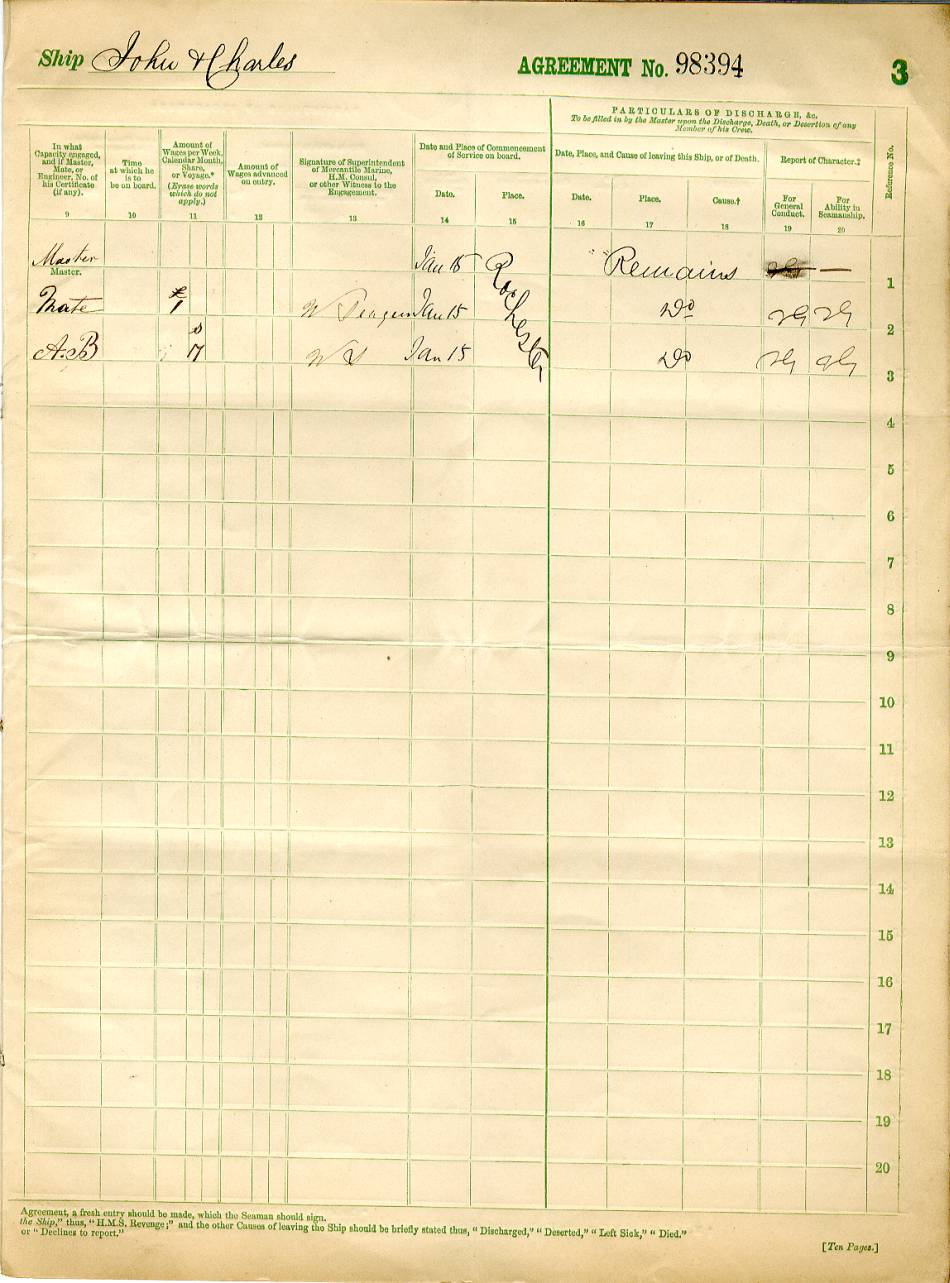 Ship John & Charles AGREEMENT No. 98394 3
PARTICULARS OF DISCHARGE, &c.
To be filled in by the Master upon the Discharge, Death, or Desertion of any
Member of his Crew.
In what
Capacity engaged,
and if Master,
Mate, or
Engineer, No. of
his Certificate
(if any).
Time
at which he
is to
be on board.
Amount of
Wages per Week,
Calendar Month,
Share,
or Voyage.*
(Erase words
which do not
apply.)
Amount of
Wages advanced
on entry.
Signature of Superintendent
of Mercantile Marine,
H.M. Consul,
or other Witness to the
Engagement.
Date and Place of Commencement
of Service on board.
Date. Place.
Date, Place, and Cause of leaving this Ship, or of Death.
Date. Place. Cause.†
Report of Character.‡
For
General
Conduct.
For
Ability in
Seamanship.
Reference No.
9 10 11 12 13 14 15 16 17 18 19 20
Master Jan 15 Rochester Remains —
Master. 1
Mate £ 1 W Jan 15 Do VG VG 2
A.B s 17 W S Jan 15 Do VG VG 3
4
5
6
7
8
9
10
11
12
13
14
15
16
17
18
19
20
Agreement, a fresh entry should be made, which the Seaman should sign.
the Ship," thus, "H.M.S. Revenge;" and the other Causes of leaving the Ship should be briefly stated thus, "Discharged," "Deserted," "Left Sick," "Died."
or "Declines to report."
[Ten Pages.]